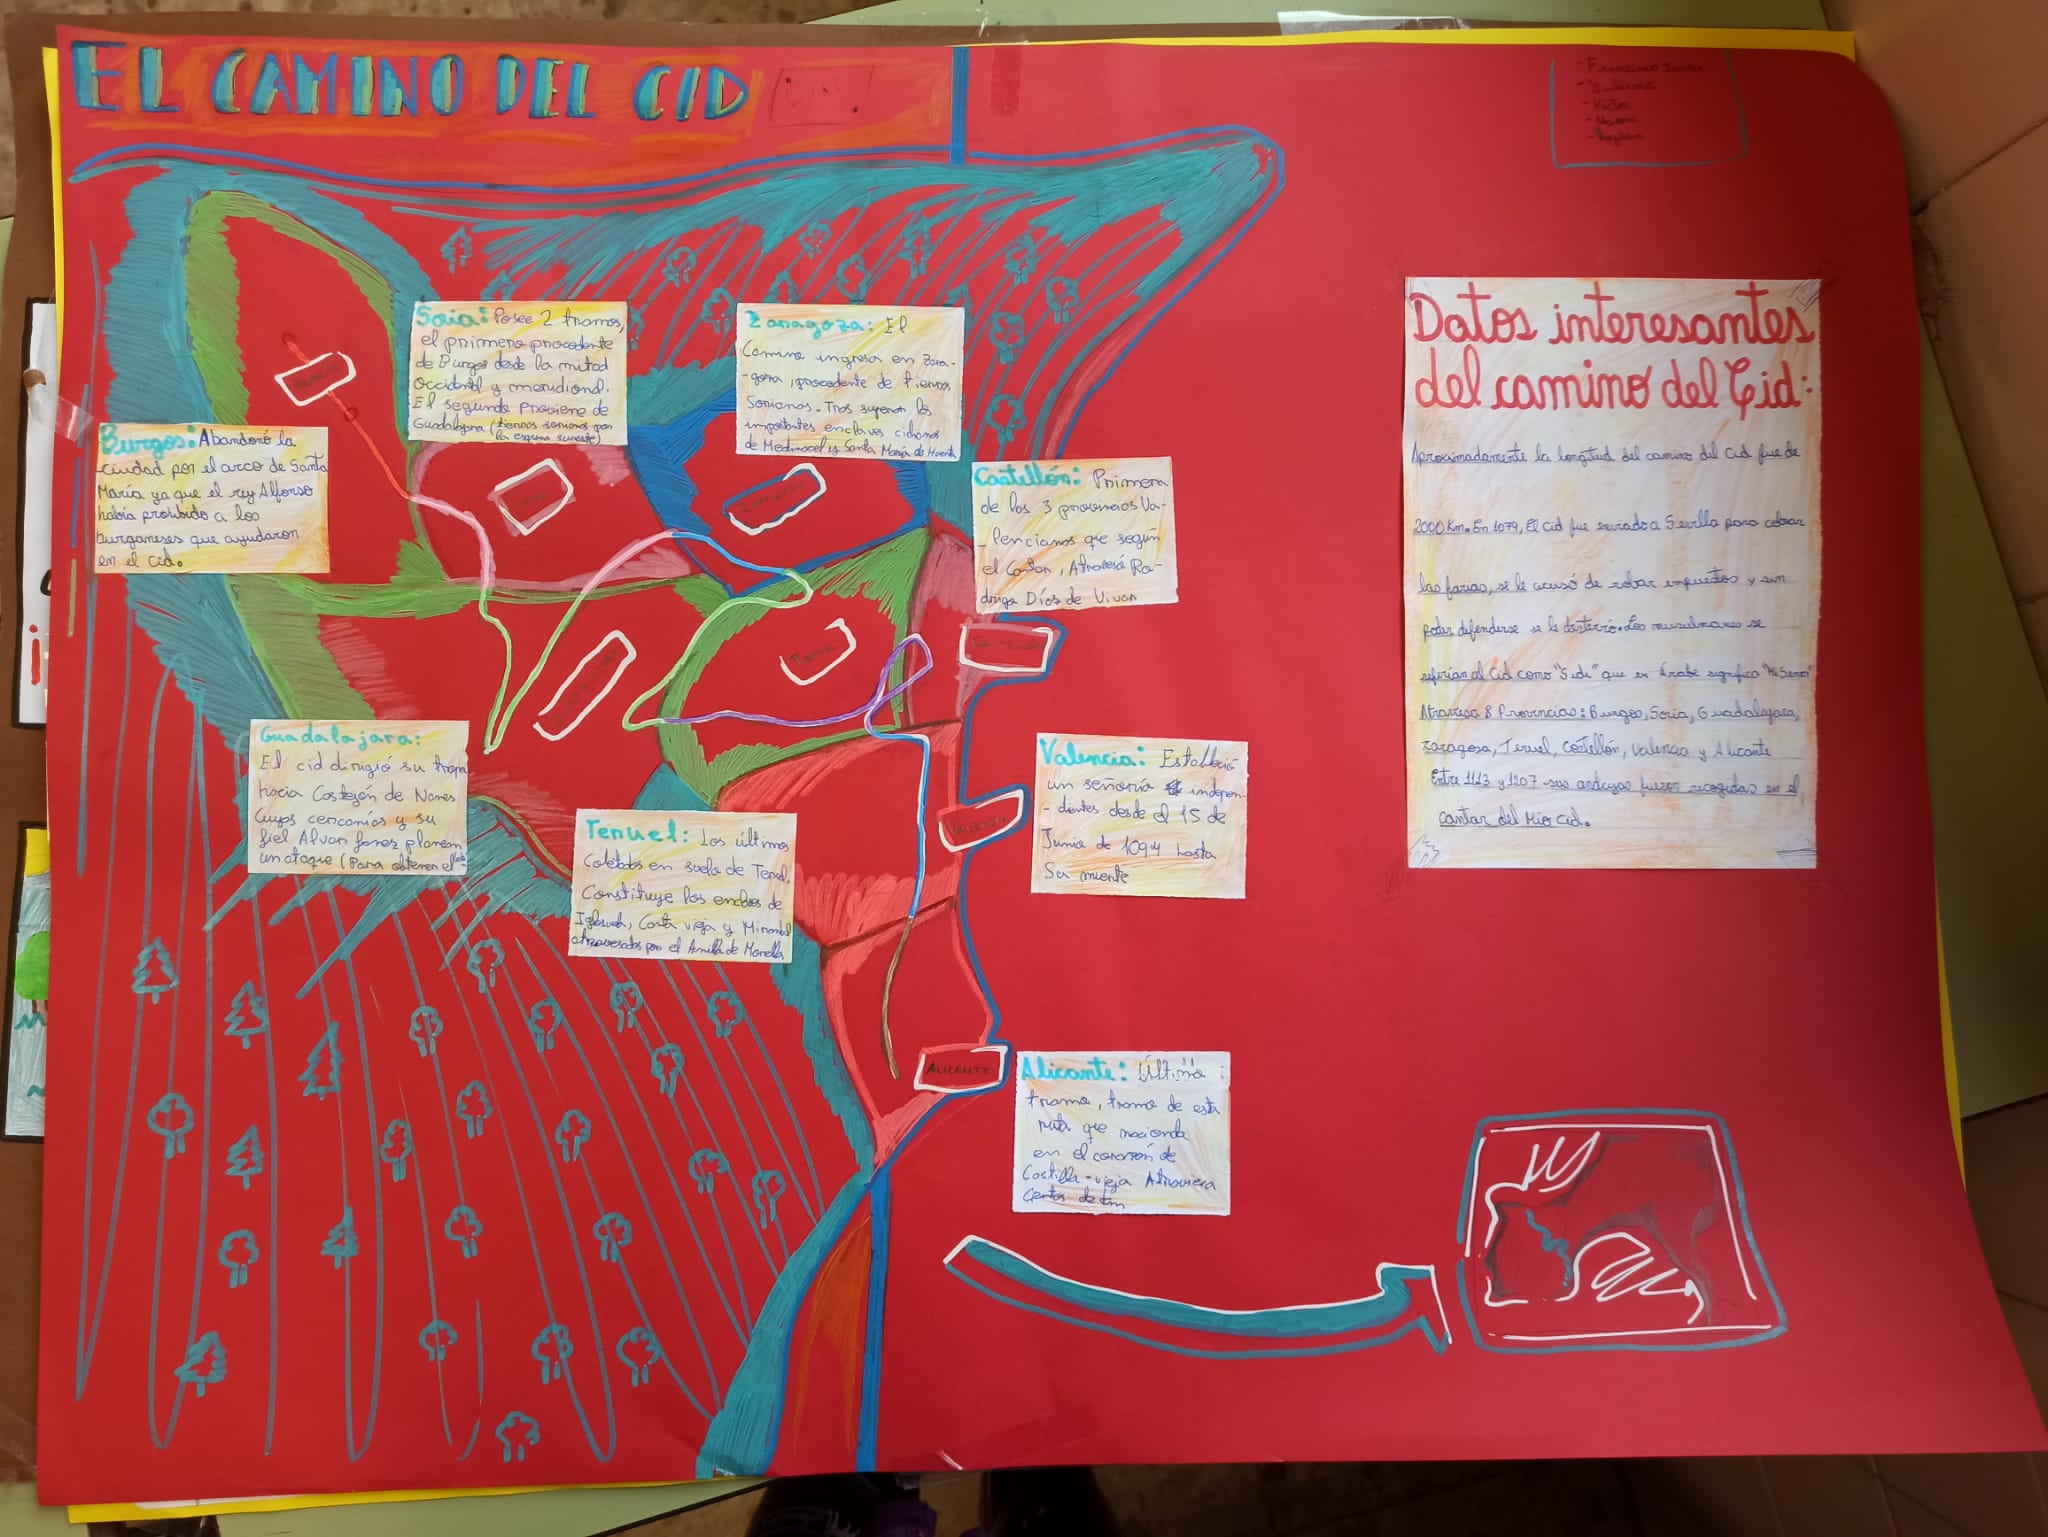 EL CAMINO DEL CID
Soria: Posee 2 tramos,
el primero procedente
de Burgos desde la mitad
occidental y meridional.
El segundo proviene de
Guadalajara (tierras sorianas por
la esquina sureste)
Zaragoza: El
Camino ingresa en Zara-
-goza, procedente de tierras
Sorianas. Tras superar los
importantes enclaves cidianos
de Medinaceli y Santa María de Huerta
Burgos: Abandonó la
-ciudad por el arco de Santa
María ya que el rey Alfonso
había prohibido a los
burgaleses que ayudaran
en el cid.
Castellón: Primera
de las 3 provincias Va-
-lencianas que según
el Cantar, Atravesó Ro-
drigo Díos de Vivar
Guadalajara:
El cid dirigió su tropa
hacia Castejón de Nares
Cuyas cercanías y su
fiel Alvar fanez planean
un ataque (Para obtener el
Teruel: Los últimos
en suelo de Teruel.
Constituye los enclaves de
Iglesuela, Canta vieja y Mirambel
atravesados por el Anillo de Morella
Valencia: Estableció
un señoría indepen-
-dientes desde el 15 de
Junio de 1094 hasta
Su muerte
Alicante: Última
tramo, tramo de esta
ruta que naciendo
en el corazón de
Castilla-vieja Atraviesa
Cientos de km
ALICANTE
Datos interesantes
del camino del Cid:
Aproximadamente la longitud del camino del Cid fue de
2000 Km. En 1079, El Cid fue enviado a Sevilla para cobrar
las parias, se le acusó de robar impuestos y sin
poder defenderse se le desterró. Los musulmanes se
referían al Cid como "Sidi" que en Árabe significa "Mi Señor"
Atraviesa 8 Provincias: Burgos, Soria, Guadalajara,
zaragoza, Teruel, Castellón, Valencia y Alicante
Entre 1113 y 1207 sus andazas fueron recogidas en el
cantar del Mio Cid.